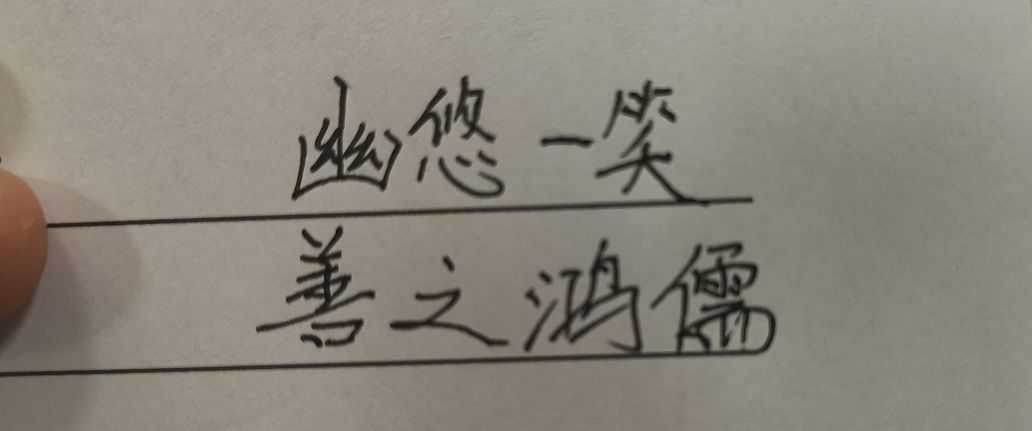 幽悠一笑
善之鸿儒